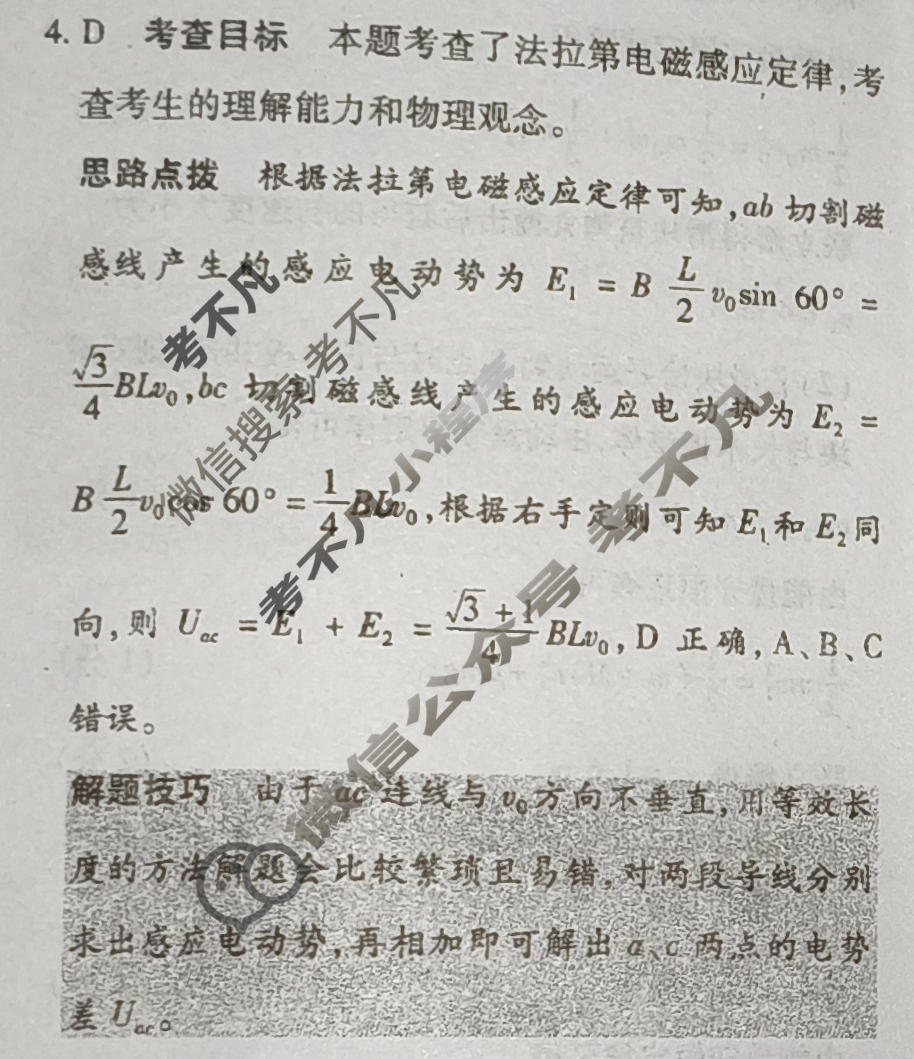 4. D 考查目标 本题考查了法拉第电磁感应定律,考
查考生的理解能力和物理观念。
思路点拨 根据法拉第电磁感应定律可知,ab 切割磁
感线产生的感应电动势为 E₁ = B L/2 v₀sin 60° =
√3/4 BLv₀,bc 切割磁感线产生的感应电动势为 E₂ =
B L/2 v₀cos 60° = 1/4 BLv₀,根据右手定则可知 E₁和 E₂同
向,则 Uac = E₁ + E₂ = (√3 + 1)/4 BLv₀,D 正确,A、B、C
错误。
解题技巧 由于 ac 连线与 v₀方向不垂直,用等效长
度的方法解题会比较繁琐且易错,对两段导线分别
求出感应电动势,再相加即可解出 a、c 两点的电势
差 Uac。
考不凡
微信搜索考不凡
考不凡小程序
微信公众号 考不凡